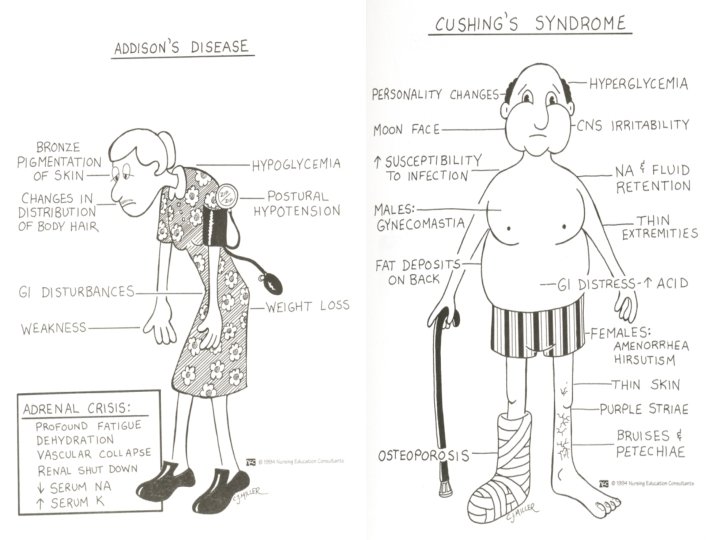 ADDISON'S DISEASE
BRONZE
PIGMENTATION
OF SKIN
CHANGES IN
DISTRIBUTION
OF BODY HAIR
GI DISTURBANCES
WEAKNESS
HYPOGLYCEMIA
POSTURAL
HYPOTENSION
WEIGHT LOSS
ADRENAL CRISIS:
PROFOUND FATIGUE
DEHYDRATION
VASCULAR COLLAPSE
RENAL SHUT DOWN
↓ SERUM NA
↑ SERUM K
© 1994 Nursing Education Consultants
CJMILLER
CUSHING'S SYNDROME
PERSONALITY CHANGES
MOON FACE
↑ SUSCEPTIBILITY
TO INFECTION
MALES:
GYNECOMASTIA
FAT DEPOSITS
ON BACK
OSTEOPOROSIS
HYPERGLYCEMIA
CNS IRRITABILITY
NA & FLUID
RETENTION
THIN
EXTREMITIES
GI DISTRESS-↑ ACID
FEMALES:
AMENORRHEA
HIRSUTISM
THIN SKIN
PURPLE STRIAE
BRUISES &
PETECHIAE
© 1994 Nursing Education Consultants
CJMILLER